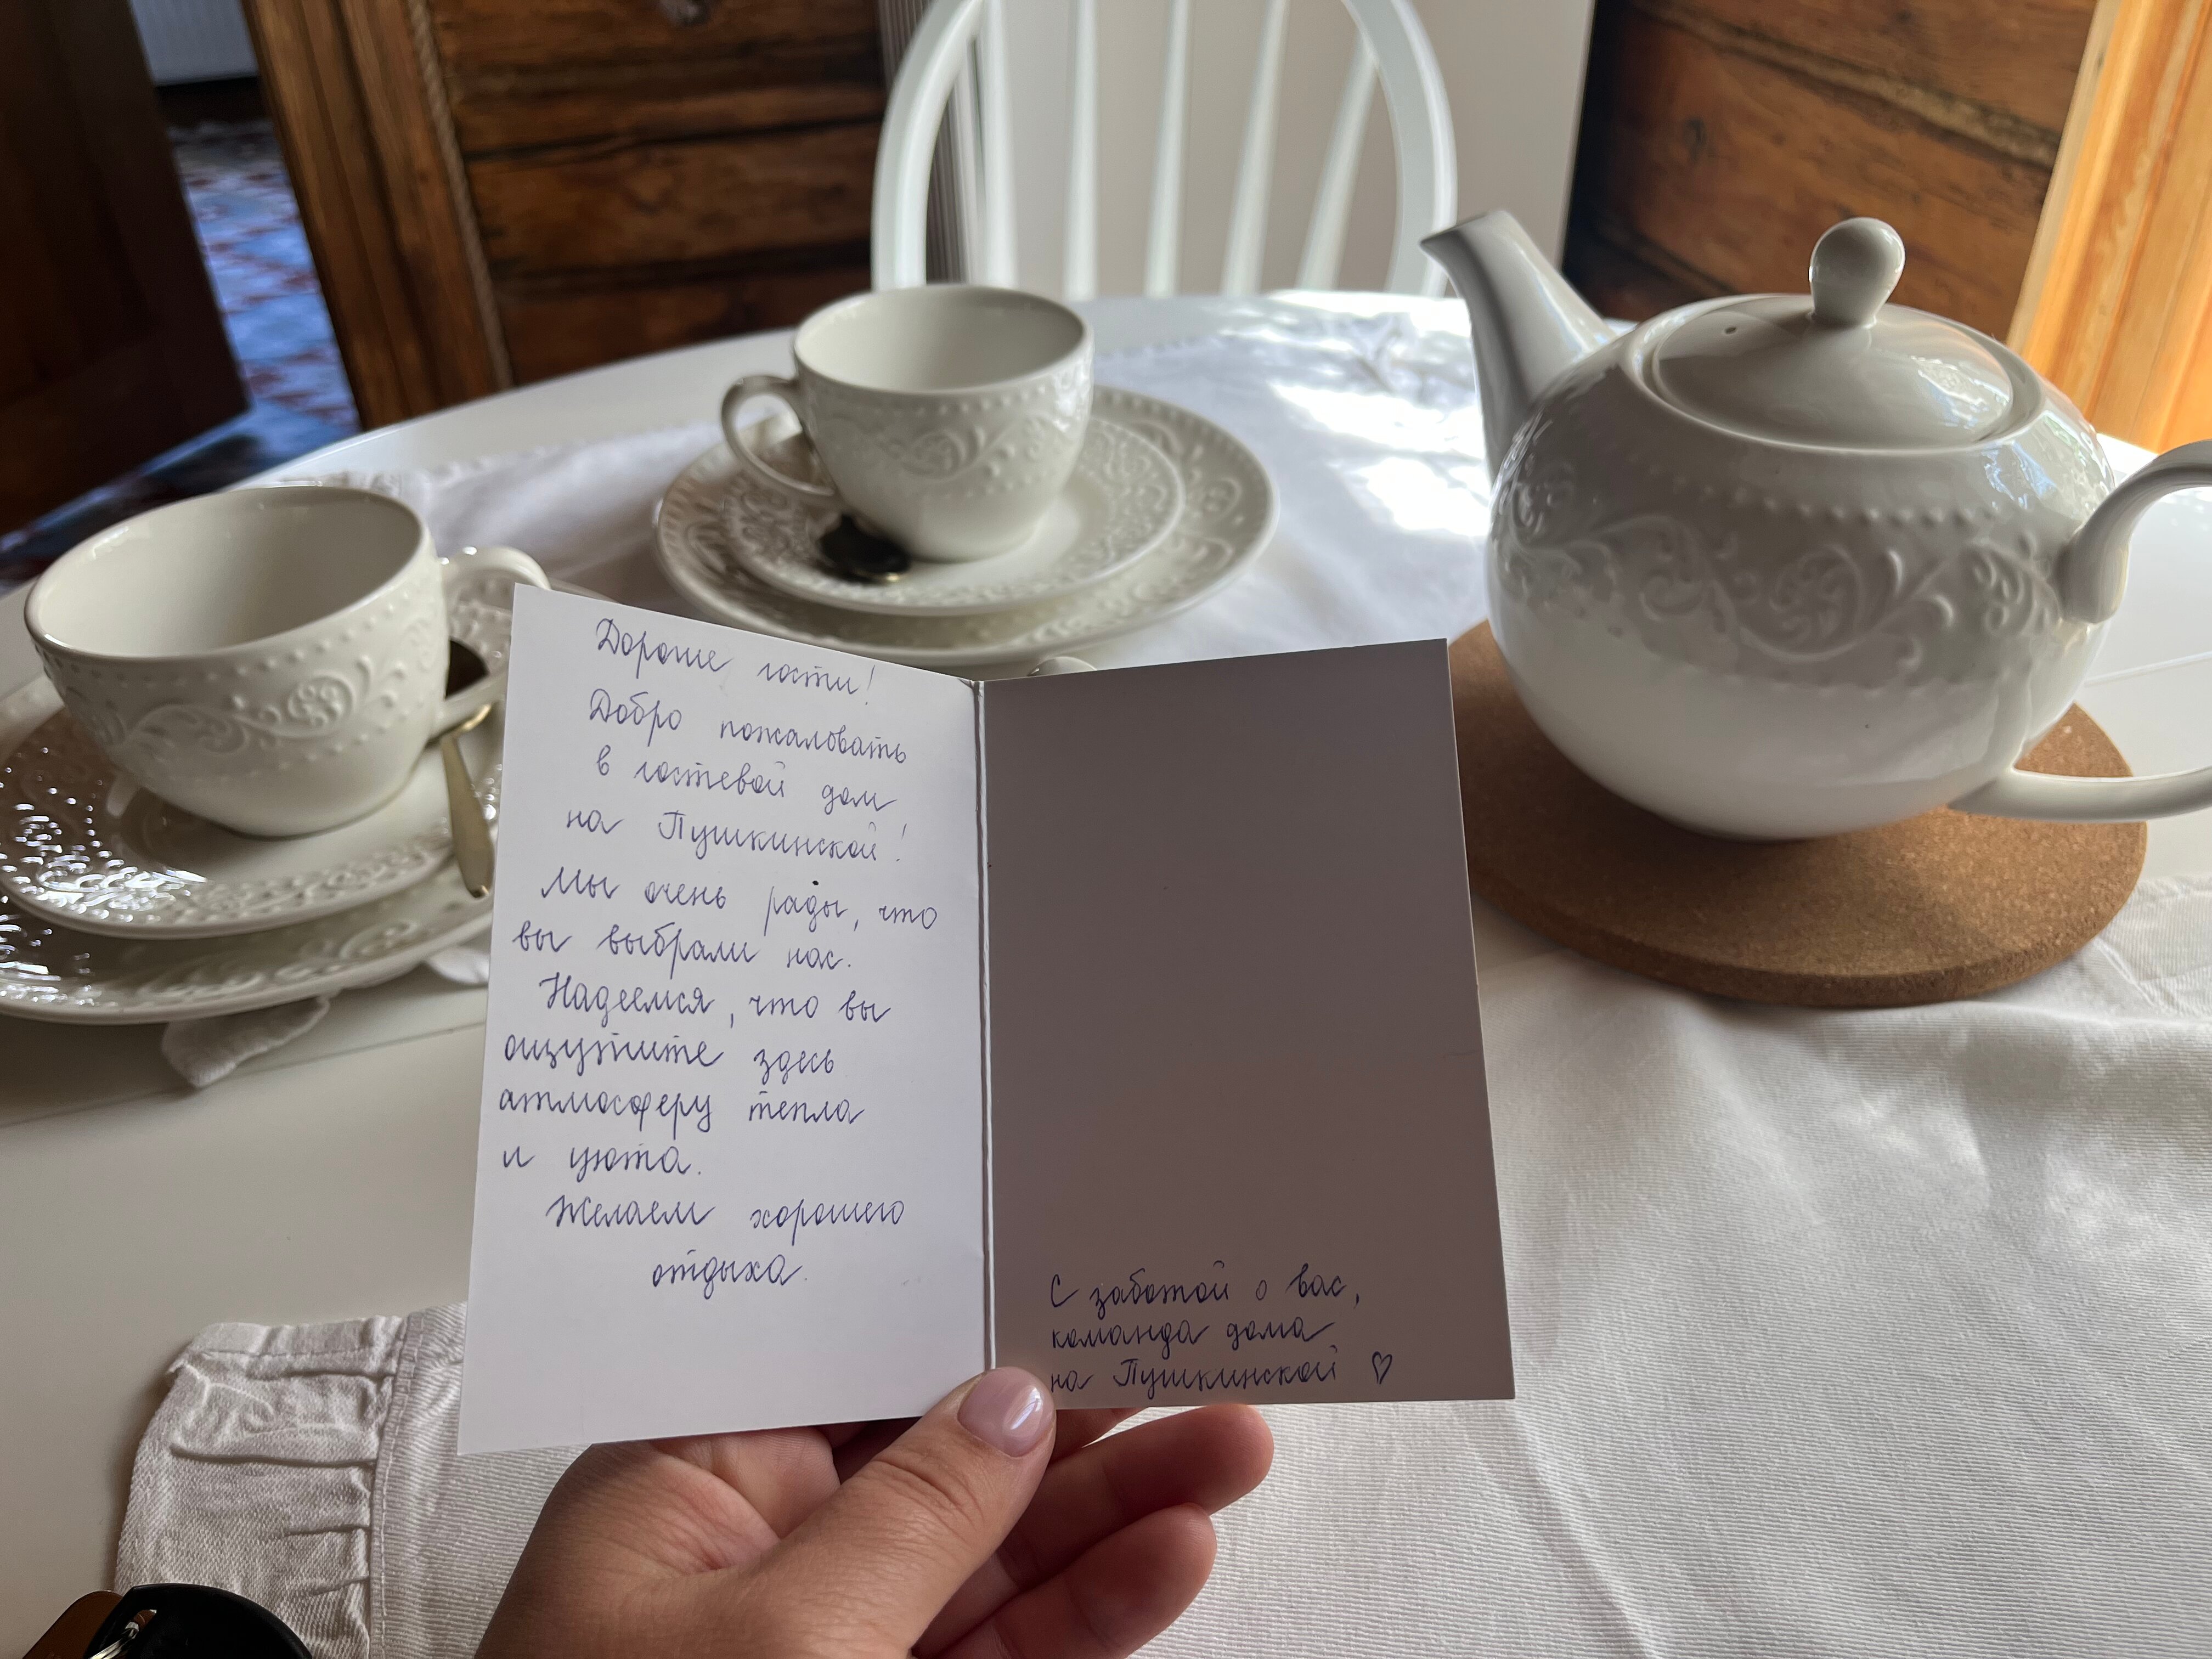 Дорогие гости!
Добро пожаловать
в гостевой дом
на Пушкинской!
Мы очень рады, что
вы выбрали нас.
Надеемся, что вы
ощутите здесь
атмосферу тепла
и уюта.
Желаем хорошего
отдыха.
С заботой о вас,
команда дома
на Пушкинской ♡